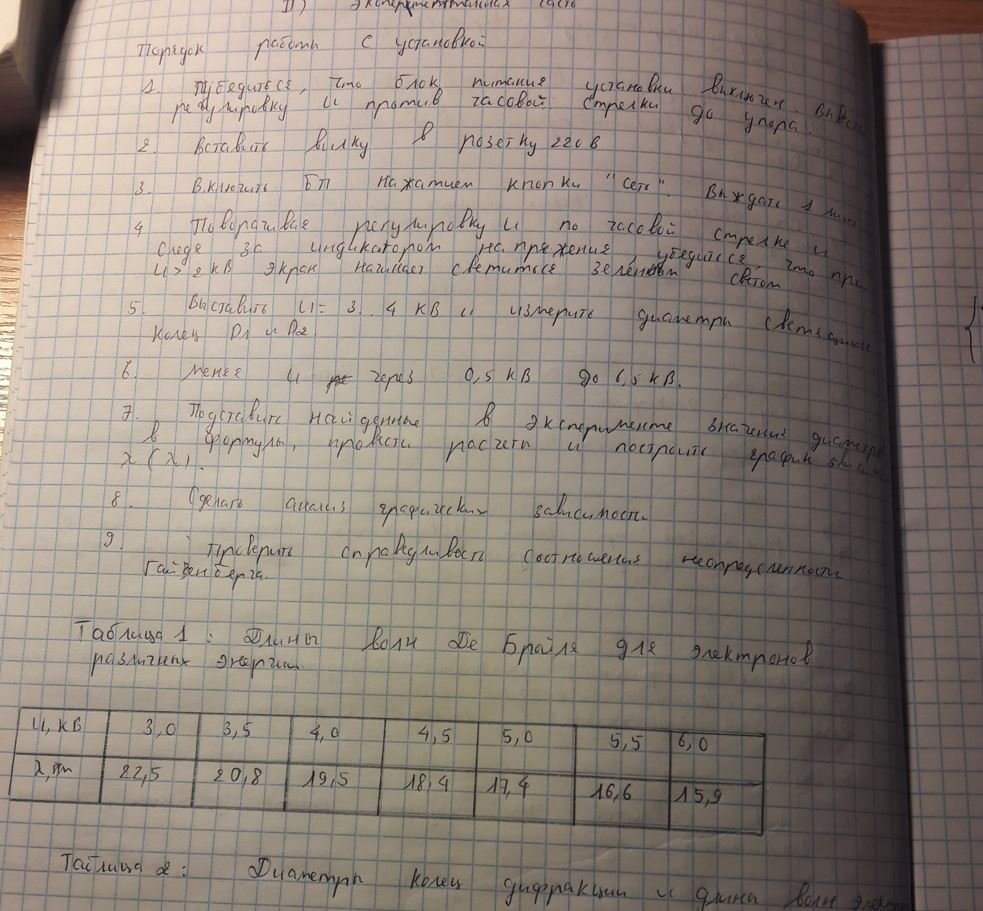 II) Экспериментальная часть
Порядок работы с установкой
1. Убедиться, что блок питания установки выключен. Вывести
регулировку U против часовой стрелки до упора.
2. Вставить вилку в розетку 220 В
3. Включить БП нажатием кнопки "сеть". Выждать 1 мин
4 Поворачивая регулировку U по часовой стрелке и
следя за индикатором напряжения, убедиться, что при
U > 2 кВ экран начинает светиться зелёным светом
5. Выставить U = 3..4 кВ и измерить диаметры светящихся
колец D1 и D2.
6. меняя U через 0,5 кВ до 6,5 кВ.
7. Подставить найденные в эксперименте значения диаметров
в формулы, провести расчеты и построить график
λ (λ).
8. Сделать анализ графических зависимости
9. Проверить справедливость соотношения неопределенности
Гайзенберга.
Таблица 1 : Длины волн Де Бройля для электронов
различных энергии.
U, кВ 3,0 3,5 4,0 4,5 5,0 5,5 6,0
λ, пм 22,5 20,8 19,5 18,4 17,4 16,6 15,9
Таблица 2 : Диаметры колец дифракции и длина волн